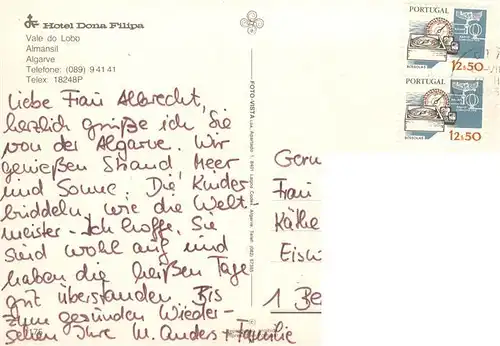 Hotel Dona Filipa
Vale do Lobo
Almansil
Algarve
Telefone: (089) 9 41 41
Telex 18248P
Liebe Frau Albrecht,
herzlich grüße ich Sie
von der Algarve. Wir
genießen Strand, Meer
und Sonne. Die Kinder
buddeln, wie die Welt-
meister. Ich hoffe, Sie
sind wohl auf und
haben die heißen Tage
gut überstanden. Bis
zum gesunden Wieder-
sehen Ihre M. Anders + Familie
FOTO-VISTA
PORTUGAL
12$50
PORTUGAL
12$50
Frau
Käthe
1 Be